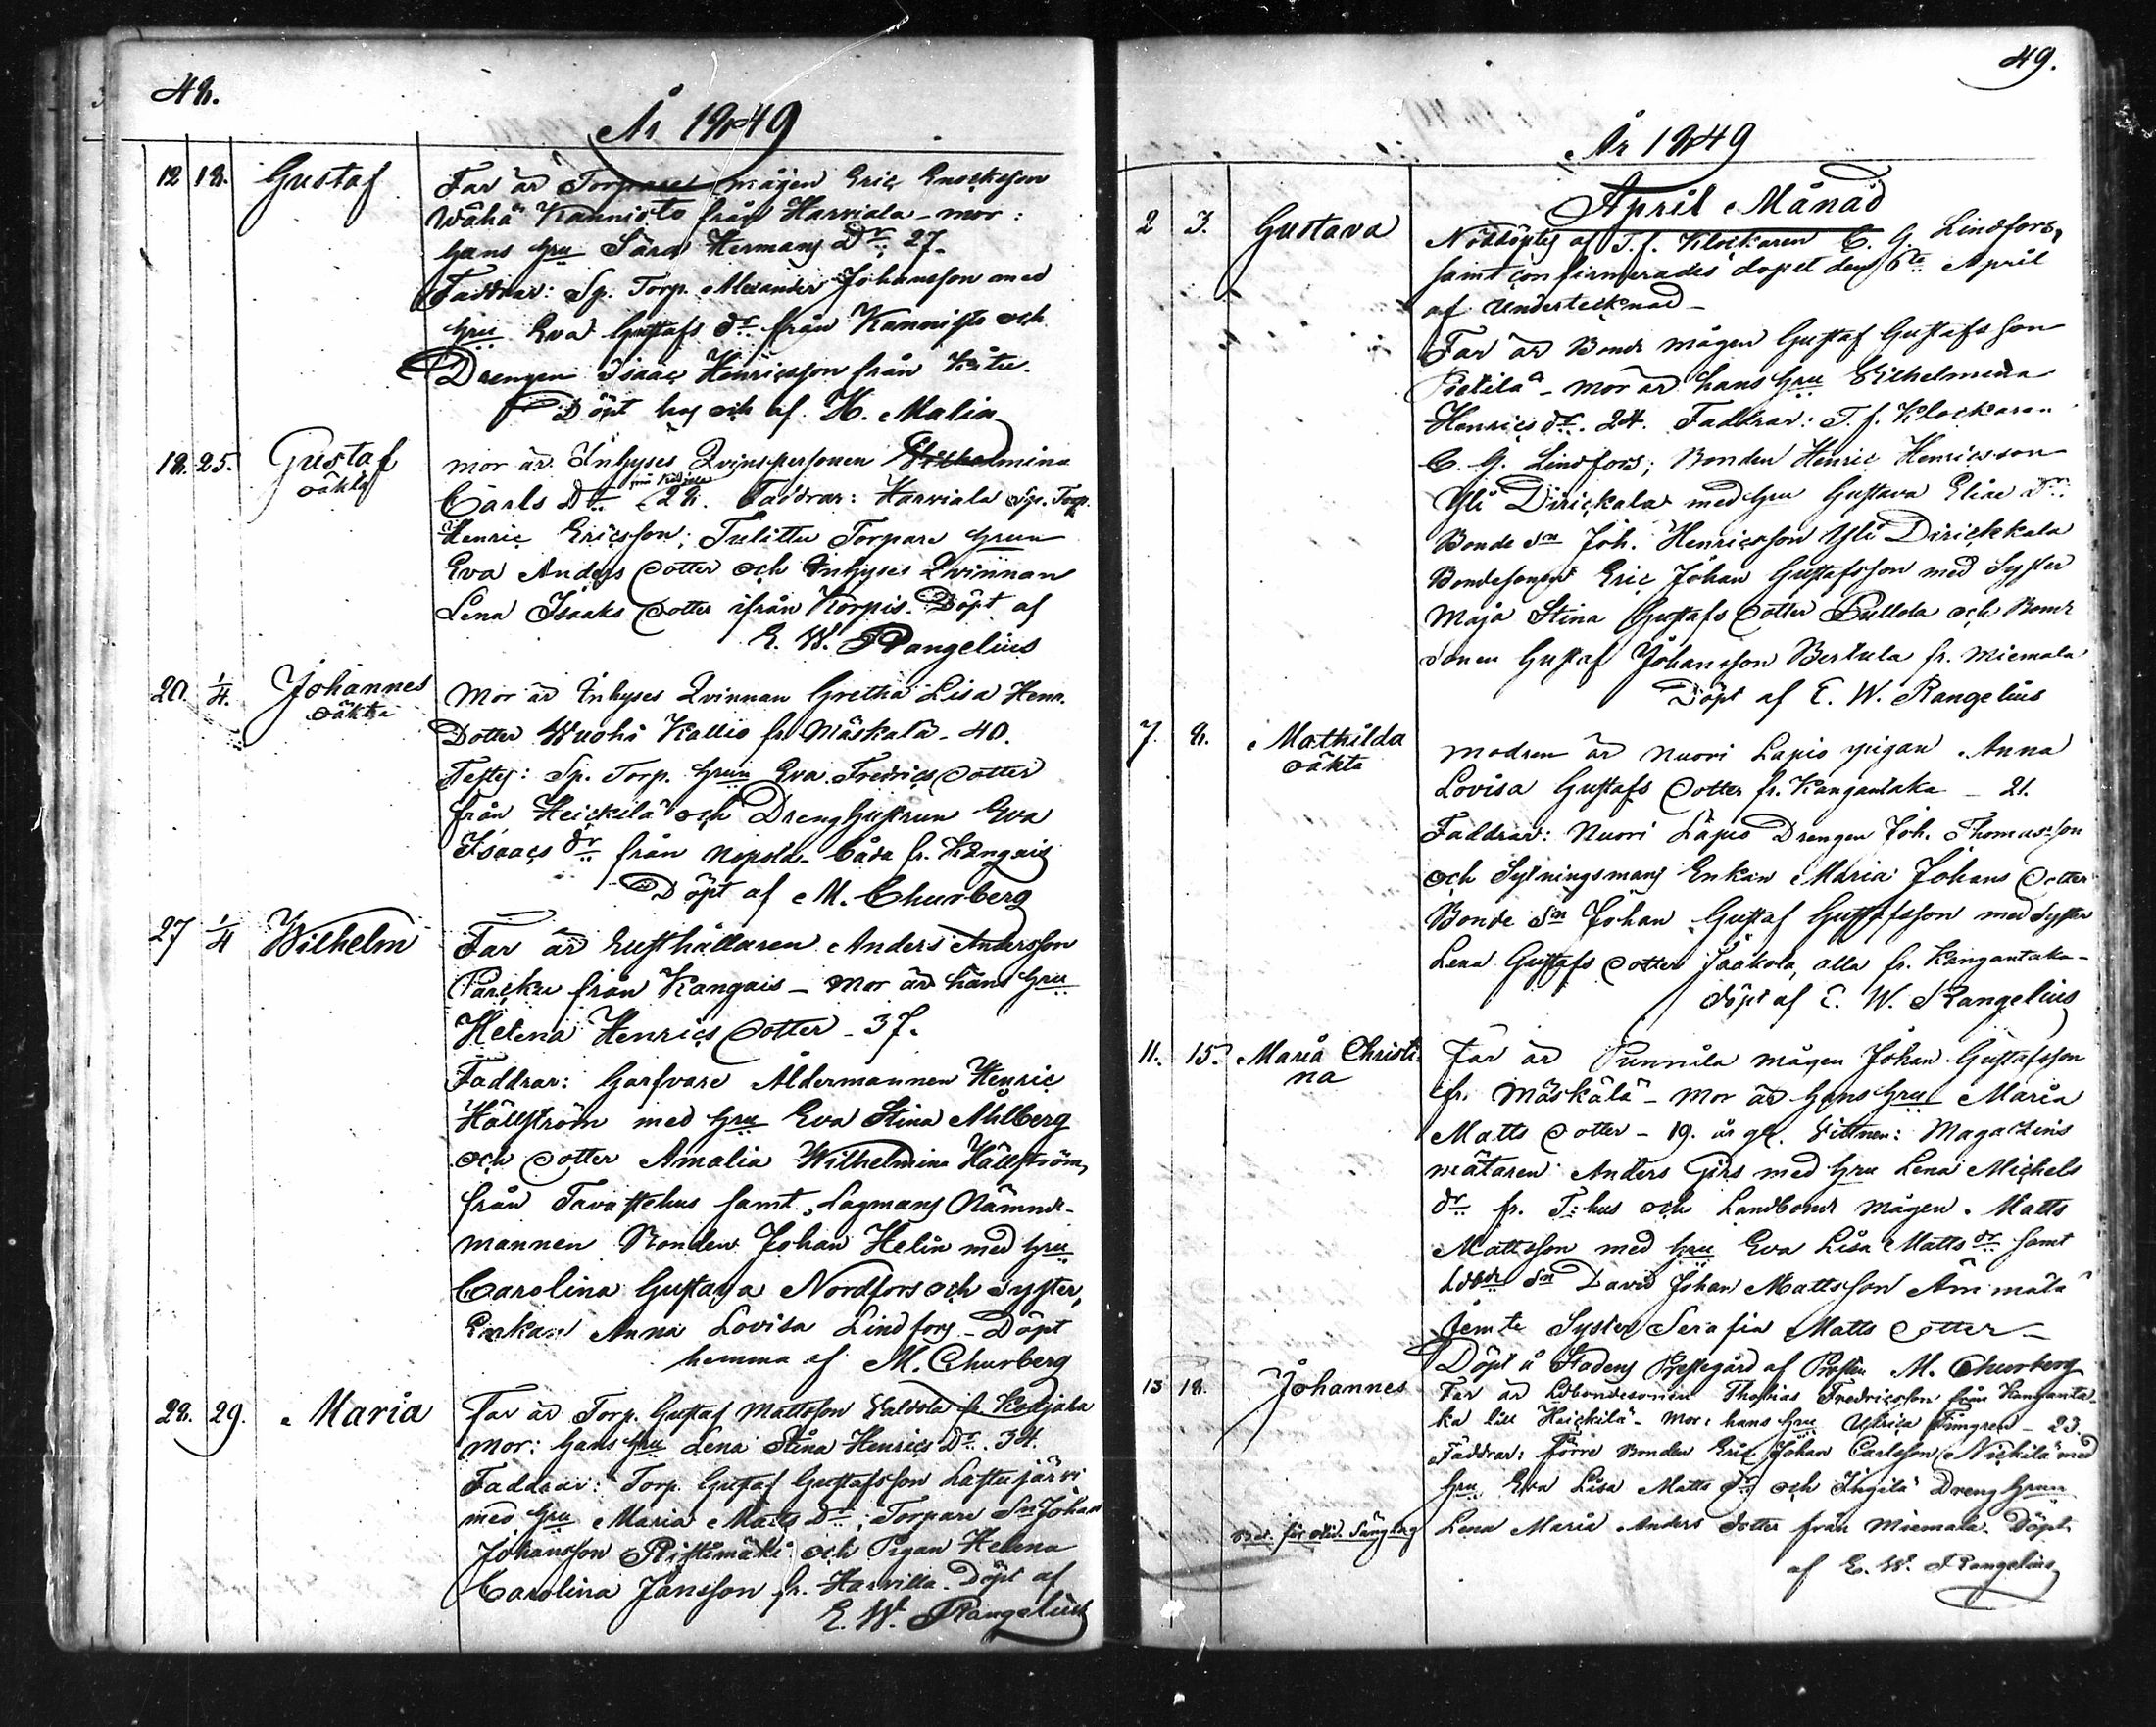 48.
År 1849
12 18. Gustaf Far är Torpare mågen Eric Enocksson
Wähä Kannisto från Harviala - mor:
hans hru Sara Hermans Dr 27.
Faddrar: Sp. Torp. Alexander Johansson med
hru Eva Gustafs dr från Kannisto och
Drengen Isaac Henricsson från Kätu.
Döpt hos och af H. Malin
18. 25. Gustaf oäkta mor är Inhyses Qvinspersonen Wilhelmina
Carls Dr 28. Faddrar: Harviala Sp. Torp.
Henric Ericsson; Tulittu Torpare hrun
Eva Anders Dotter och Inhyses Qvinnan
Lena Isaaks Dotter ifrån Korpis. Döpt af
E. W. Rangelius
20. 1/4. Johannes oäkta Mor är Inhyses Qvinnan Gretha Lisa Henr.
Dotter Wuohi Kallio fr Mäskälä - 40.
Testes: Sp. Torp. hrun Eva Fredrics Dotter
från Heickilä och Dreng hustrun Eva
Isaacs dr från Nopola - båda fr. Kangais
Döpt af M. Churberg
27 1/4 Wilhelm Far är Rusthållaren Anders Andersson
Parcku från Kangais - Mor är hans hru
Helena Henrics Dotter - 37.
Faddrar: Garfvare Åldermannen Henric
Hällström med hru Eva Stina Ahlberg
och Dotter Amalia Wilhelmina Hällström,
från Tavastehus samt Lagmans Nämnde-
mannen Bonden Johan Helin med hru
Carolina Gustava Nordfors och Syster,
Enkan Anna Lovisa Lindfors - Döpt
hemma af M. Churberg
28. 29. Maria Far är Torp. Gustaf Mattsson Valdola fr. Kodjala
mor: hans hru Lena Stina Henrics Dr. 34.
Faddrar: Torp. Gustaf Gustafsson Lastujärvi
med hru Maria Matts Dr; Torpare Sn Johan
Johansson Ristimäki och Pigan Helena
Carolina Jansson fr. Harvilla. Döpt af
E. W. Rangelius
49.
År 1849
April Månad
2 3. Gustava Nöddöptes af T. f. Klockaren C. G. Lindfors,
samt confirmerades dopet den 6te April
af undertecknad -
Far är Bonde mågen Gustaf Gustafsson
Pietilä - mor är hans hru Vilhelmina
Henrics dr. 24. Faddrar: T. f. Klockaren
C. G. Lindfors; Bonden Henric Henricsson
Yli Dirickala med hru Gustava Eliae Dr
Bonde Sn Joh. Henricsson Yli Dirickkala
Bondesonen Eric Johan Gustafsson med Syster
Maja Stina Gustafs Dotter Pullola och Bonde
sonen Gustaf Johansson Bertula fr. Miemala
Döpt af E. W. Rangelius
7. 8. Mathilda oäkta modren är Nuori Lapio pigan Anna
Lovisa Gustafs Dotter fr. Kangantaka - 21.
Faddrar: Nuori Lapio Drengen Joh. Thomasson
och Sytningsmans Enkan Maria Johans Dotter
Bonde Sn Johan Gustaf Gustafsson med Syster
Lena Gustafs Dotter Jaakola, alla fr. Kangantaka -
döpt af E. W. Rangelius
11. 15. Maria Christi-
na Far är Punnila mågen Johan Gustafsson
fr. Mäskälä - Mor är hans hru Maria
Matts Dotter - 19. år gl. Vittnen: Magazins
mätaren Anders Girs med hru Lena Michels
dr fr. T:hus och Landbonde mågen Matts
Mattsson med hru Eva Lisa Matts dr samt
Ldbde Sn David Johan Mattsson
jemte Syster Serafia Matts Dotter -
Döpt å Stadens Prestegård af Prosten M. Churberg
13 18. Johannes Far är Ldbondesonen Thomas Fredricsson från Kanganta-
ka till Heickilä - Mor: hans hru Ulrica - 23.
Faddrar: förre Bonden Eric Johan Carlsson Nickilä med
hru Eva Lisa Matts dr och Ingilä Dreng hrun
Lena Maria Anders Dotter från Miemala. Döpt
af E. W. Rangelius